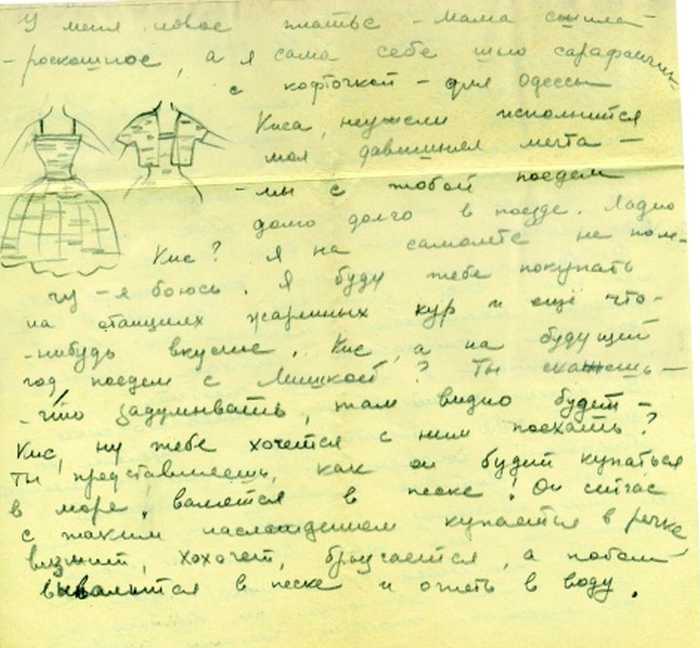 У меня новое платье - мама сшила -
- роскошное, а я сама себе шью сарафанчик
с кофточкой - для Одессы
Киса, неужели исполнится
моя давишняя мечта -
- мы с тобой поедем
долго долго в поезде. Ладно
Кис? Я на самолете не поле-
чу - я боюсь. Я буду тебе покупать
на станциях жареных кур и ещё что-
-нибудь вкусное. Кис, а на будущий
год поедем с Мишкой? Ты скажешь -
- что задумывать, там видно будет -
Кис, ну тебе хочется с ним поехать?
Ты представляешь, как он будет купаться
в море, валяться в песке! Он сейчас
с таким наслаждением купается в речке
визжит, хохочет, брызгается, а потом
вываляется в песке и опять в воду.